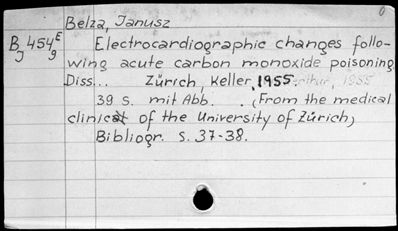 Belza, Janusz
B 454 E
J 9
Electrocardiographic changes follo-
wing acute carbon monoxide poisoning
Diss... Zürich, Keller, 1955.
39 S. mit Abb. . (From the medical
clinic of the University of Zürich)
Bibliogr. S. 37-38.